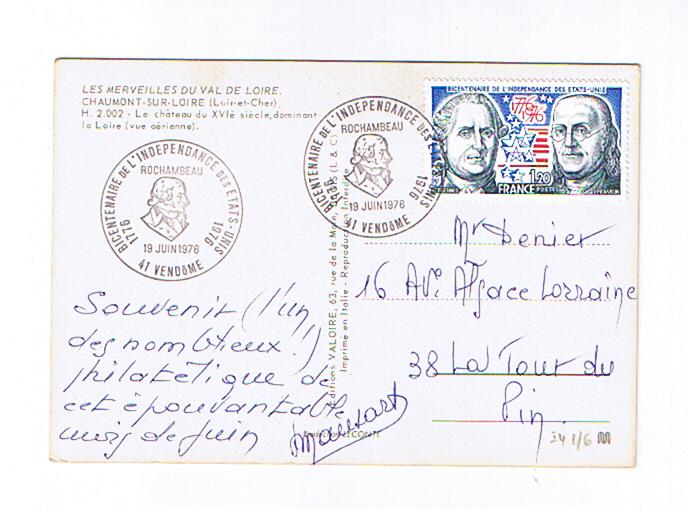 LES MERVEILLES DU VAL DE LOIRE.
CHAUMONT-SUR-LOIRE (Loir-et-Cher).
H. 2.002 - Le château du XVIè siècle, dominant
la Loire (vue aérienne).
BICENTENAIRE DE L'INDEPENDANCE DES ETATS-UNIS
ROCHAMBEAU
1776
1976
19 JUIN 1976
41 VENDÔME
BICENTENAIRE DE L'INDEPENDANCE DES ETATS-UNIS
ROCHAMBEAU
1776
1976
19 JUIN 1976
41 VENDÔME
BICENTENAIRE DE L'INDEPENDANCE DES ETATS-UNIS
1776
1976
1,20
FRANCE POSTES
Editions VALOIRE, 63, rue de la Mare, (L. & C.)
Imprimé en Italie - Reproduction Interdite
Souvenir (l'un
des nombreux !)
philatélique de
cet épouvantable
mois de juin
LECONTE
Mr Denier
16 Ave Alsace Lorraine
38 La Tour du
Pin.